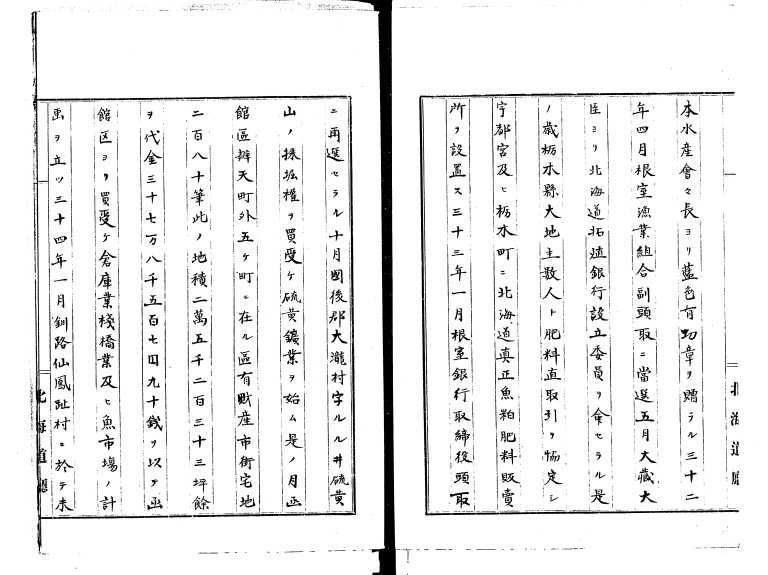 本水産會々長ヨリ藍色有功章ヲ贈ラル三十二
年四月根室漁業組合副頭取ニ當選五月大藏大
臣ヨリ北海道拓殖銀行設立委員ヲ命セラル是
ノ歳栃木縣大地主数人ト肥料直取引ヲ協定シ
宇都宮及ヒ栃木町ニ北海道真正魚粕肥料販賣
所ヲ設置ス三十三年一月根室銀行取締役頭取
北海道廳
ニ再選セラル十月國後郡大瀧村字ルルヰ硫黄
山ノ採掘權ヲ買受ケ硫黄鑛業ヲ始ム是ノ月函
館區辨天町外五ヶ町ニ在ル區有財産市街宅地
二百八十筆此ノ地積二萬五千二百三十三坪餘
ヲ代金三十七万八千五百七円九十錢ヲ以テ函
館区ヨリ買受ケ倉庫業棧橋業及ヒ魚市場ノ計
畫ヲ立ツ三十四年一月釧路仙鳳趾村ニ於テ未
北海道廳